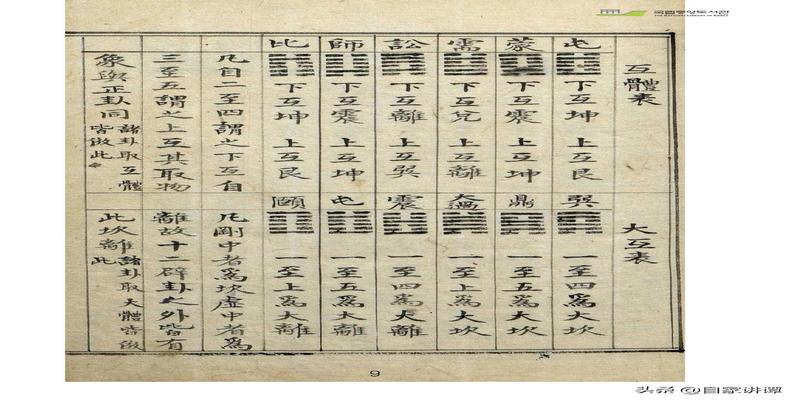 국립중앙도서관
THE NATIONAL LIBRARY OF KOREA
互體表
大互表
屯 下互坤 上互艮
蒙 下互震 上互坤
需 下互兌 上互離
訟 下互離 上互巽
師 下互震 上互坤
比 下互坤 上互艮
凡自二至四謂之下互自
三至五謂之上互其取物
象與正卦同 諸卦取互體皆倣此
巽 一至四爲大坎
鼎 一至五爲大坎
大過 一至上爲大坎
震 一至四爲大離
屯 一至五爲大離
頤 一至上爲大離
凡剛中者爲坎虛中者爲
離故十二辟卦之外皆有
此坎離 諸卦取大體皆倣此
9
头条 @自家讲谭